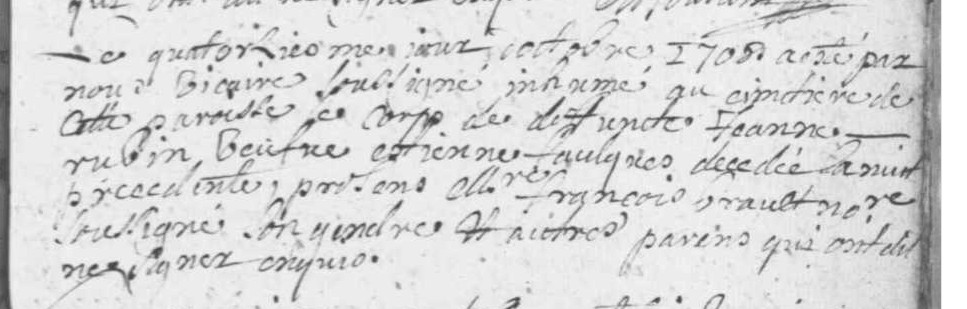 Le quatorziesme jour octobre 1708 a esté par
nous vicaire soubsigné inhumé au cimetiere de
cette paroisse le corps de deffuncte Jeanne
rubin veufve estienne faulques decedée la nuit
precedente, presens Mre françois no.re
soubsigné son gendre et autres parens qui ont dit
ne signer enquis.